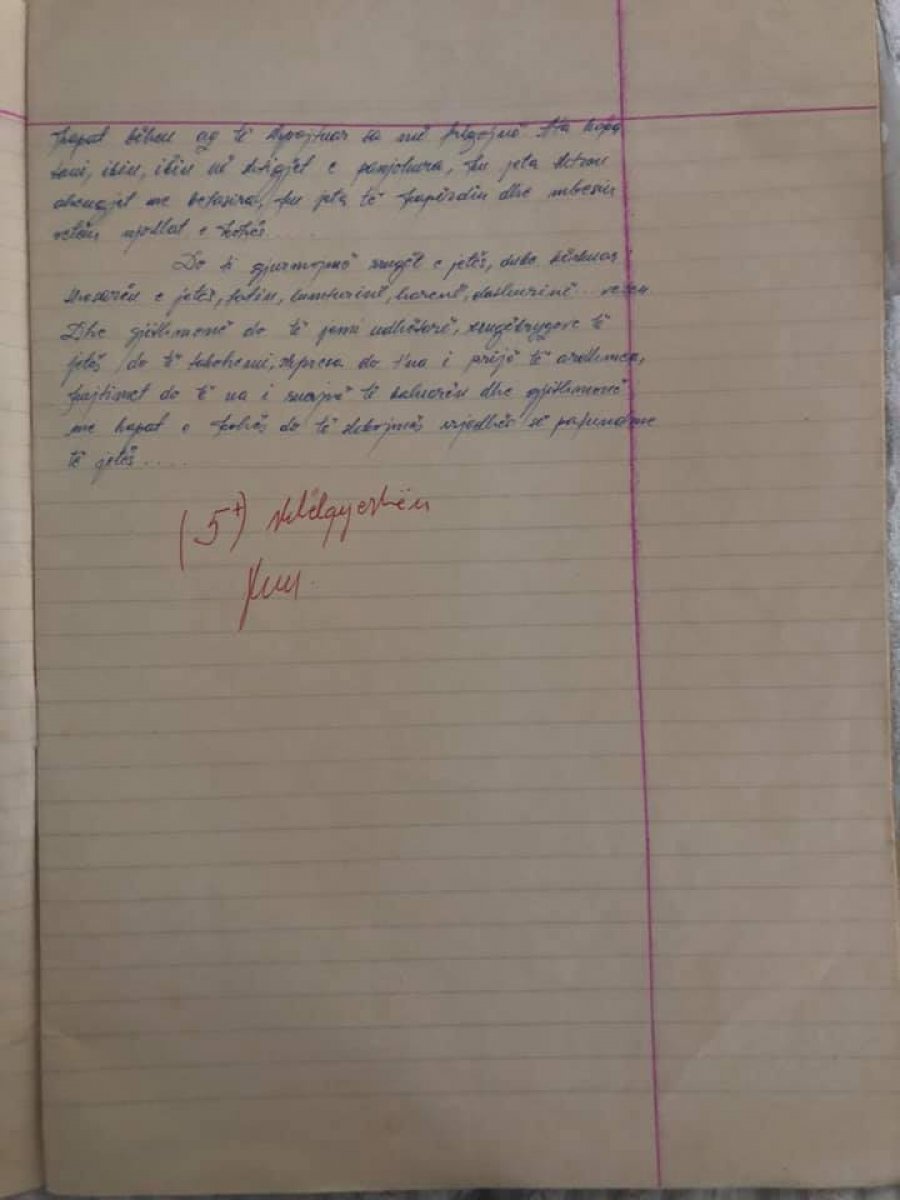 hapat bëhen aq të shpejtuar sa më frigojnë. Ata hapa
tani, ikin, ikin në shtigjet e panjohura, ku jeta shtron
ahengjet me befasira, ku jeta të kapërdin dhe mbesin
vetëm njollat e kohës.....
Do ti gjurmojmë rrugët e jetës, duke kërkuar
thesarën e jetës, fatin, lumturinë, harenë, dashurinë... veten
Dhe gjithmonë do të jemi udhëtarë, rrugëkryqeve të
jetës do të takohemi, shpresa do t'na i prijë të ardhmes,
kujtimet do të na i ruajnë të kaluarën dhe gjithmonë
me hapat e kohës do të shkojmë vjedhës të papund me
të jetës.....
(5+) shkëlqyeshëm